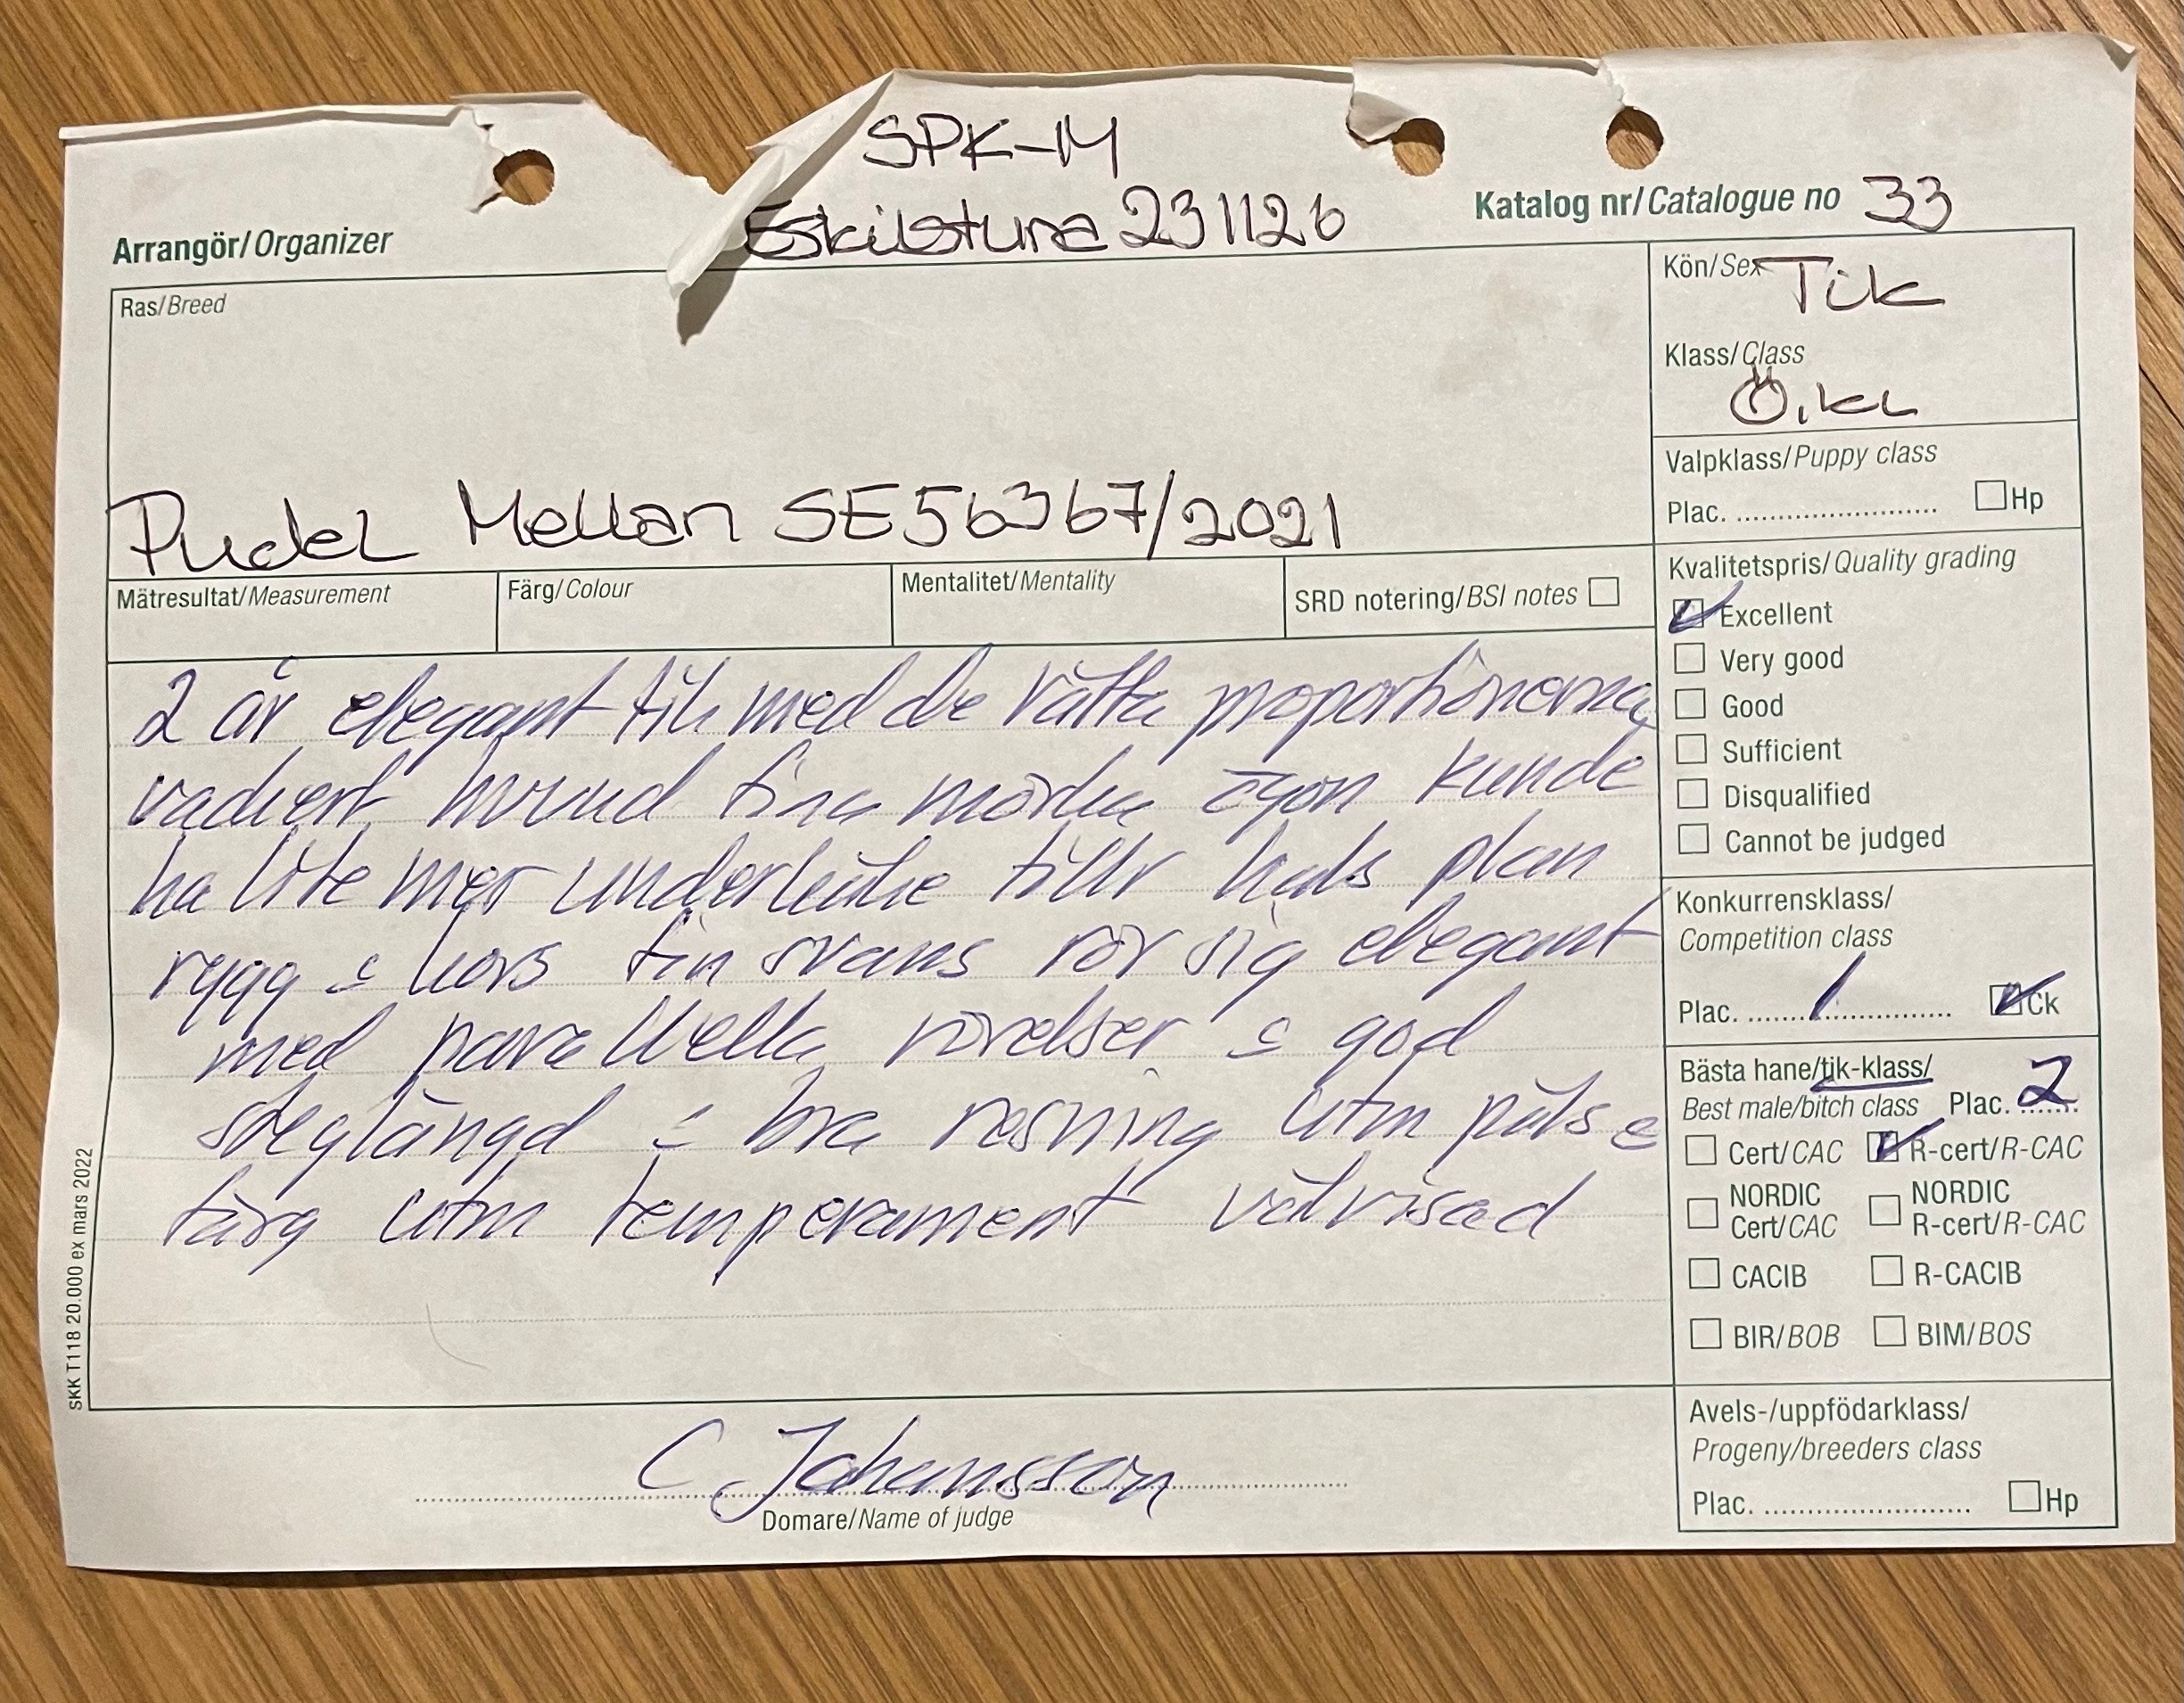 SPK-M
Eskilstuna 231126
Arrangör/Organizer
Katalog nr/Catalogue no 33
Ras/Breed
Pudel Mellan SE56367/2021
Kön/Sex Tik
Klass/Class
Ö.kl
Valpklass/Puppy class
Plac. ............................ Hp
Mätresultat/Measurement
Färg/Colour
Mentalitet/Mentality
SRD notering/BSI notes
Kvalitetspris/Quality grading
Excellent
Very good
Good
Sufficient
Disqualified
Cannot be judged
2 år elegant tik med de rätta proportionerna
vackert huvud fina mörka ögon kunde
ha lite mer underkäke tillr hals plan
rygg & kors fin svans rör sig elegant
med parallella rörelser & god
steglängd & bra resning utm päls &
färg utm temperament välvisad
Konkurrensklass/
Competition class
Plac. 1 Ck
Bästa hane/tik-klass/
Best male/bitch class Plac. 2
Cert/CAC R-cert/R-CAC
NORDIC Cert/CAC NORDIC R-cert/R-CAC
CACIB R-CACIB
BIR/BOB BIM/BOS
Avels-/uppfödarklass/
Progeny/breeders class
Plac. ............................ Hp
C Johansson
Domare/Name of judge
SKK T118 20.000 ex mars 2022